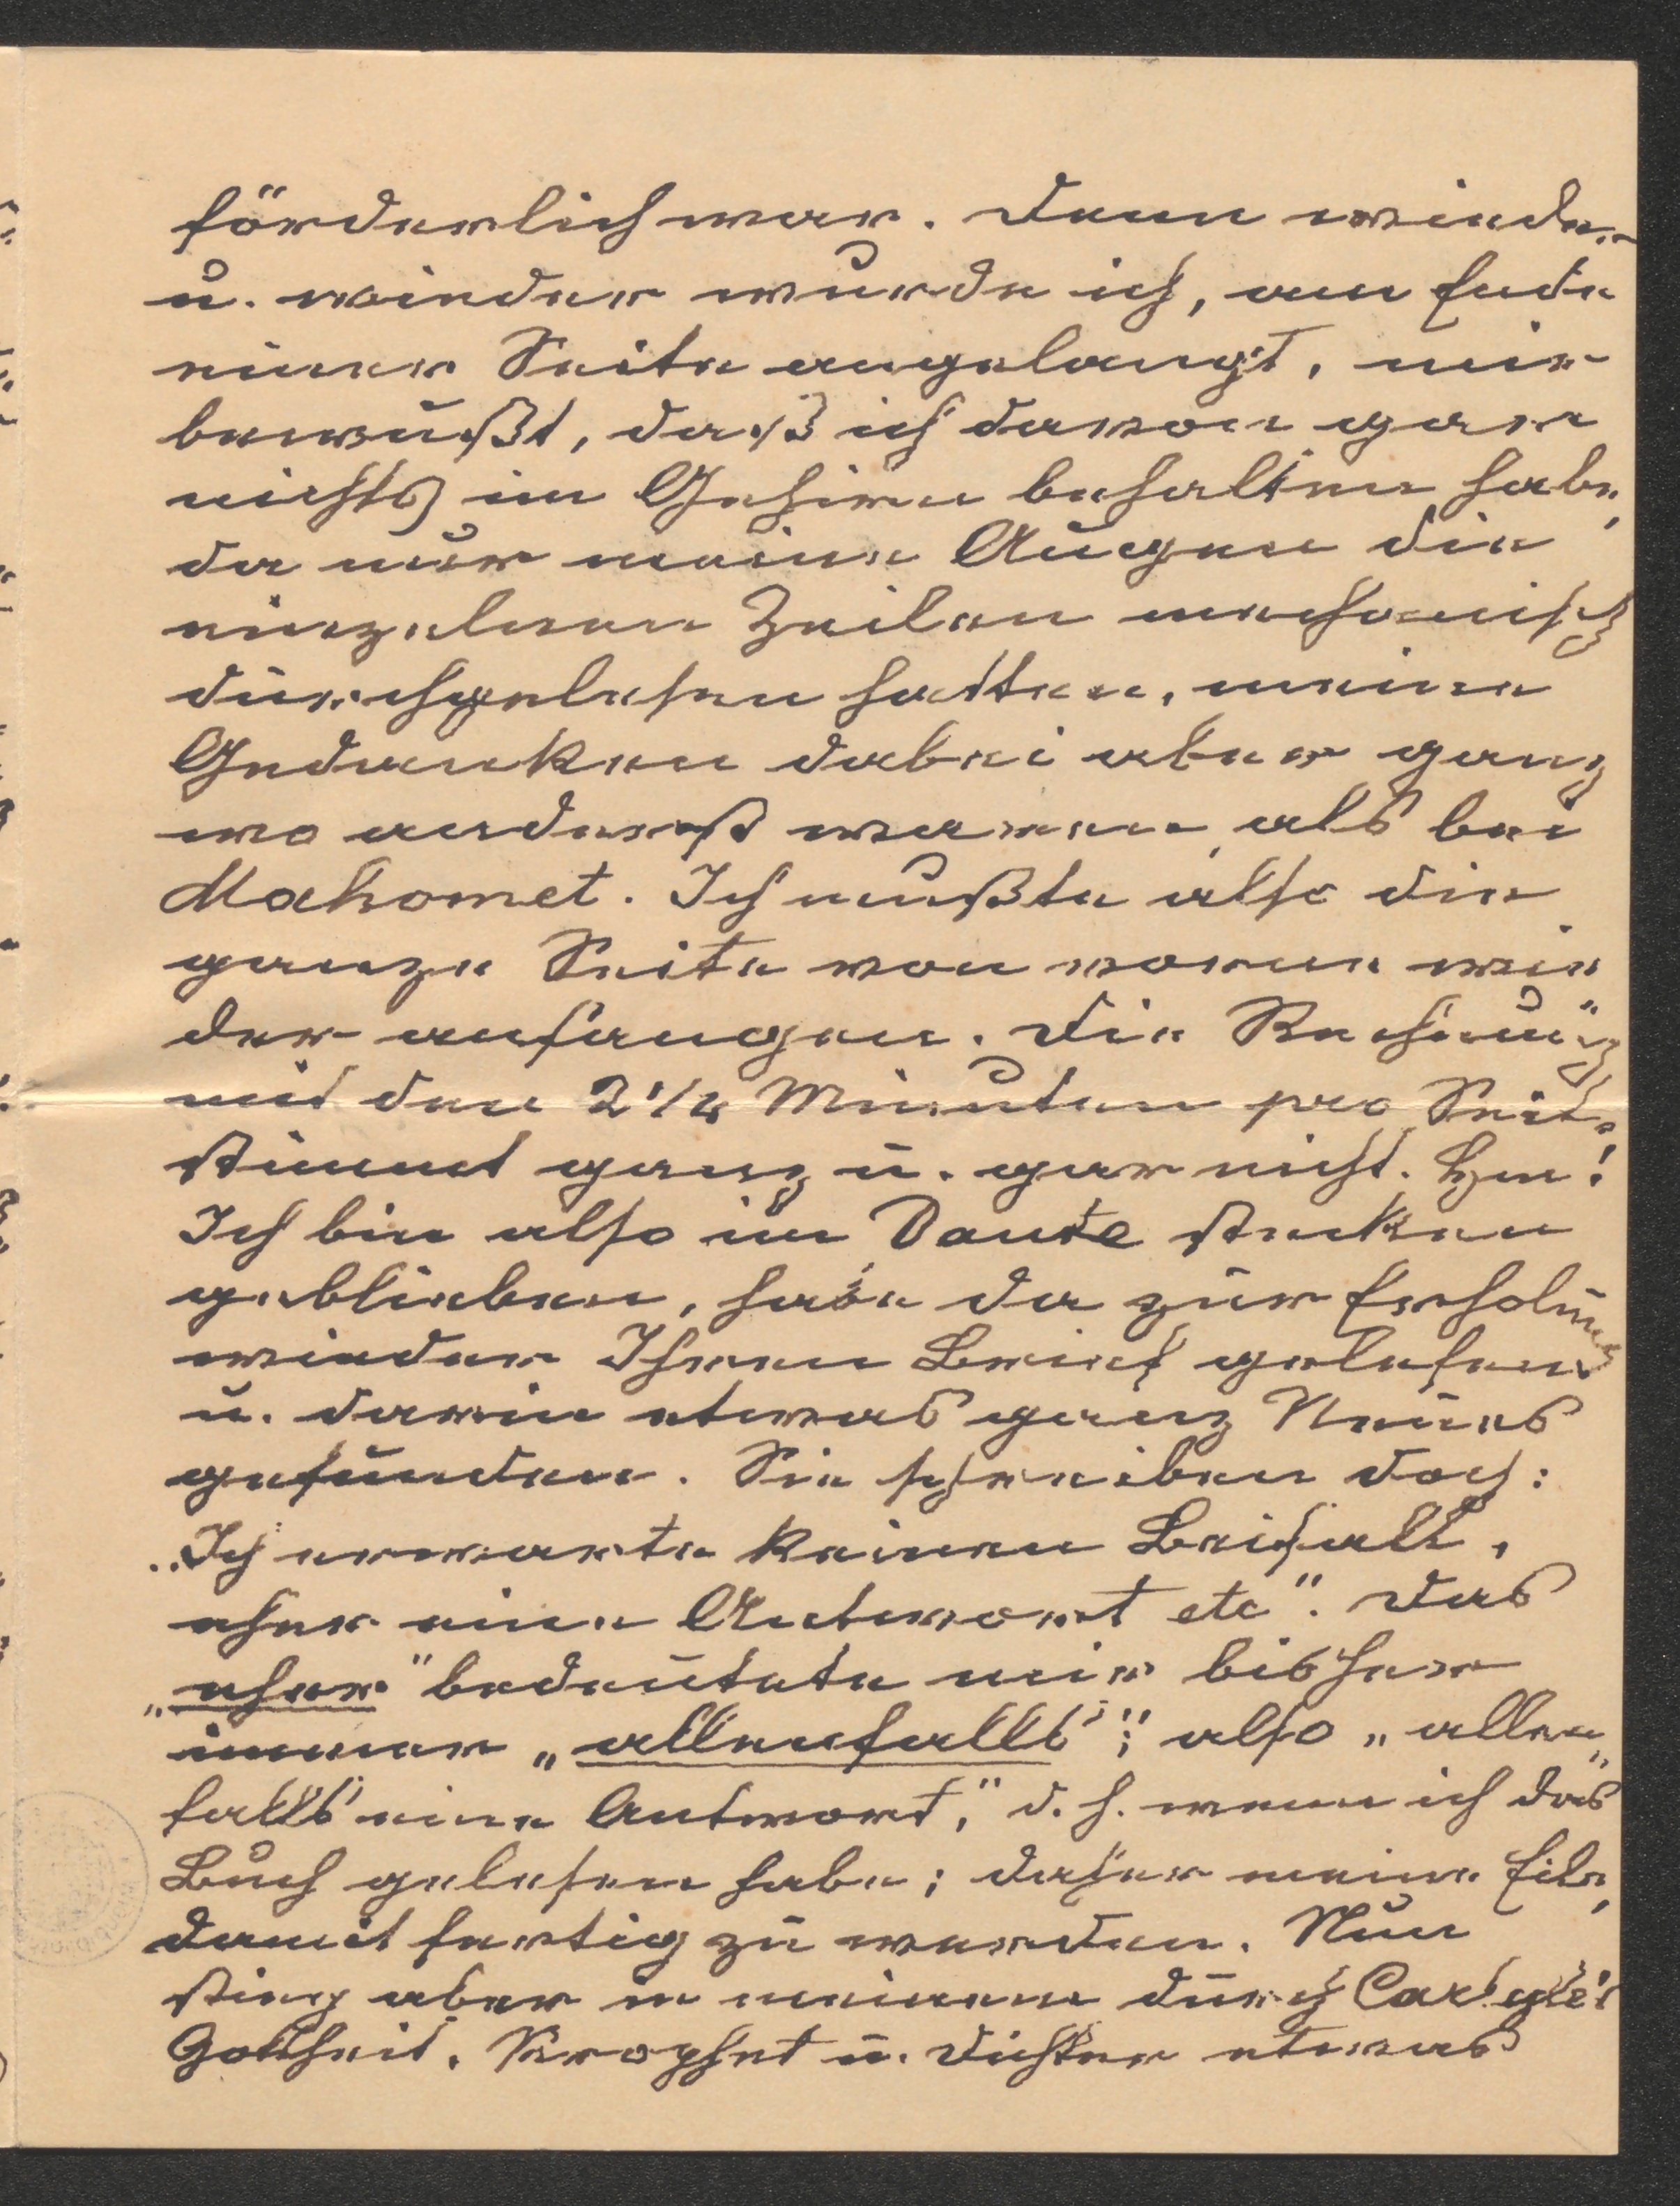 förderlich war. Denn wieder
u. wieder wurde ich, am Ende
einer Seite angelangt, mir
bewußt, daß ich davon gar
nichts im Gehirn behalten habe,
da nur meine Augen die
einzelnen Zeilen mechanisch
durchgelesen hatten, meine
Gedanken dabei aber ganz
wo anderst waren, als bei
Mahomet. Ich mußte also die
ganze Seite von vorne wie
der anfangen. Die Rechnung
mit den 2 1/4 Minuten pro Seite
stimmt ganz u. gar nicht. Hm!
Ich bin also im Dante stecken
geblieben, habe da zur Erholung
wieder Ihren Brief gelesen
u. darin etwas ganz Neues
gefunden. Sie schreiben doch:
„Ich erwarte keinen Beifall,
eher eine Antwort etc". Das
„eher" bedeutete mir bisher
immer „allenfalls"; also „allen
falls eine Antwort," d. h. wenn ich das
Buch gelesen habe; daher meine Eile,
damit fertig zu werden. Nun
stieg aber in meinem durch Carlyle's
Gottheit, Prophet u. Dichter etwas